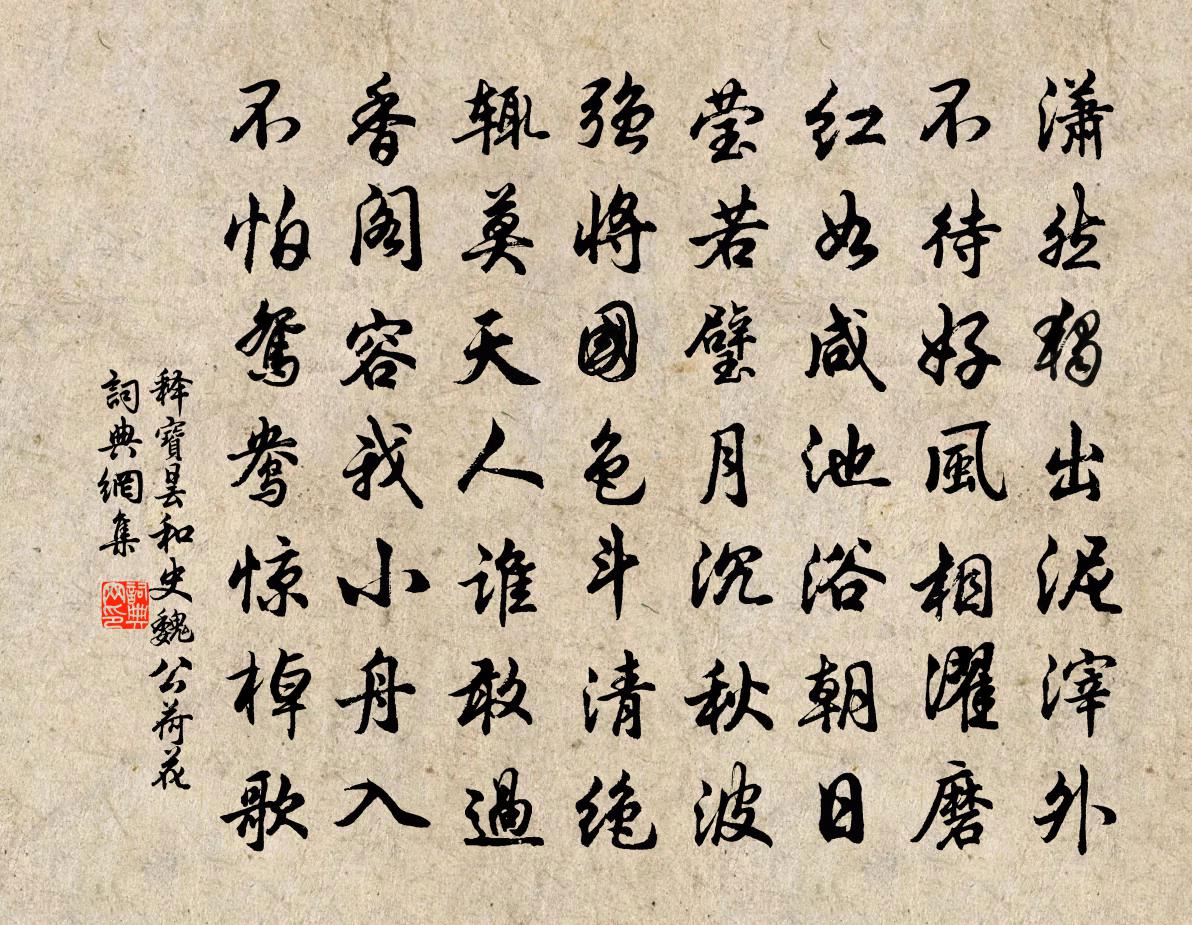 潇然独出泥滓外
不待好風相濯磨
红如咸池浴朝日
莹若璧月沉秋波
強将國色斗清绝
辄莫天人谁敢過
香阁容我小舟入
不怕鸳鸯惊棹歌
释寶昙和史魏公荷花
詞典網集
詞典网印